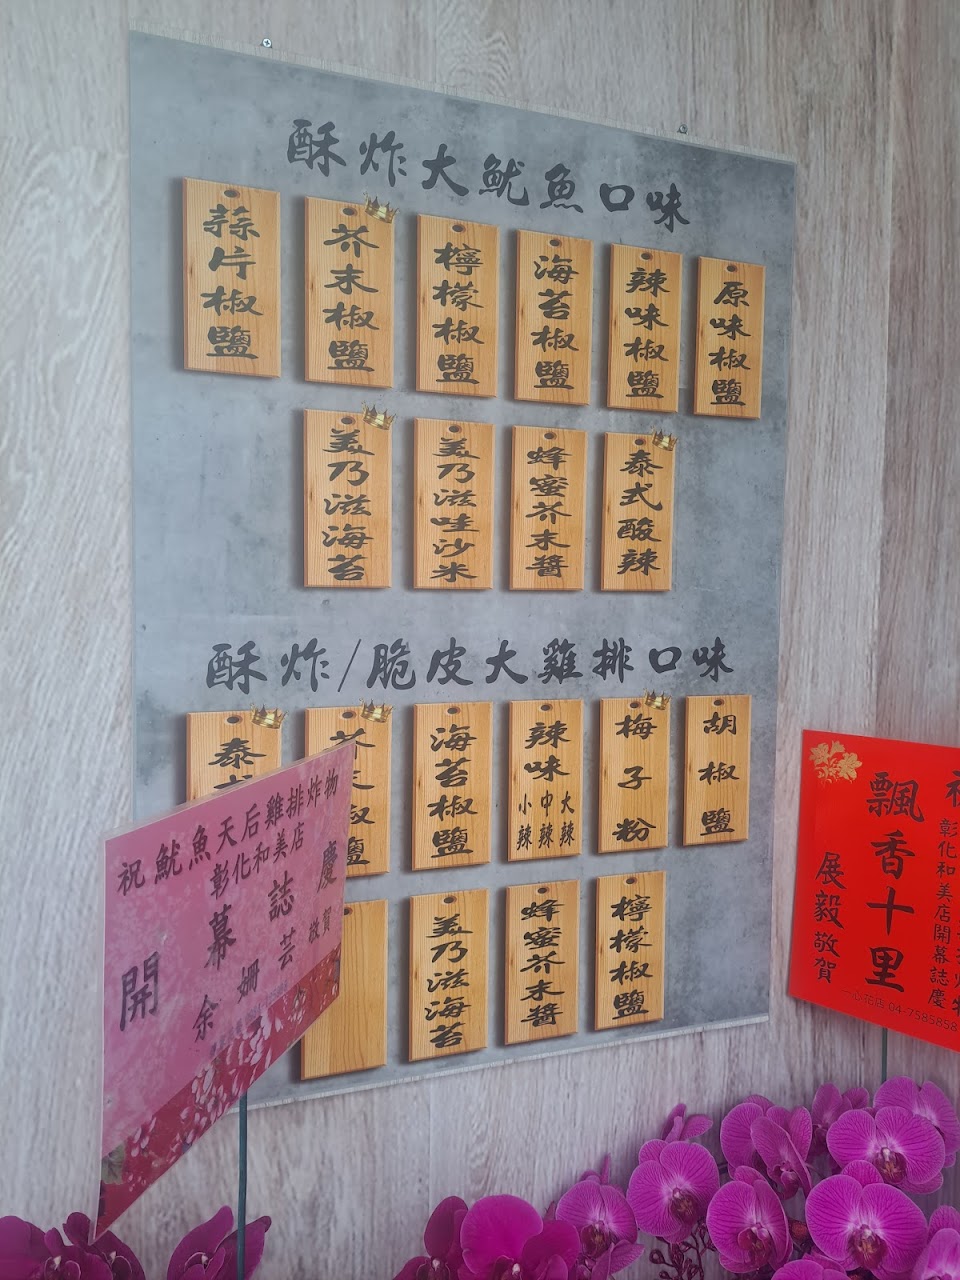 酥炸大魷魚口味
蒜片椒鹽
芥末椒鹽
檸檬椒鹽
海苔椒鹽
辣味椒鹽
原味椒鹽
美乃滋海苔
美乃滋哇沙米
蜂蜜芥末醬
泰式酸辣
酥炸/脆皮大雞排口味
泰
椒鹽
海苔椒鹽
辣味
小辣 中辣 大辣
梅子粉
胡椒鹽
美乃滋海苔
蜂蜜芥末醬
檸檬椒鹽
祝魷魚天后雞排炸物
彰化和美店
開幕誌慶
余姍芸 敬賀
彰化和美店開幕誌慶
飄香十里
展毅 敬賀
花店 04-7585858